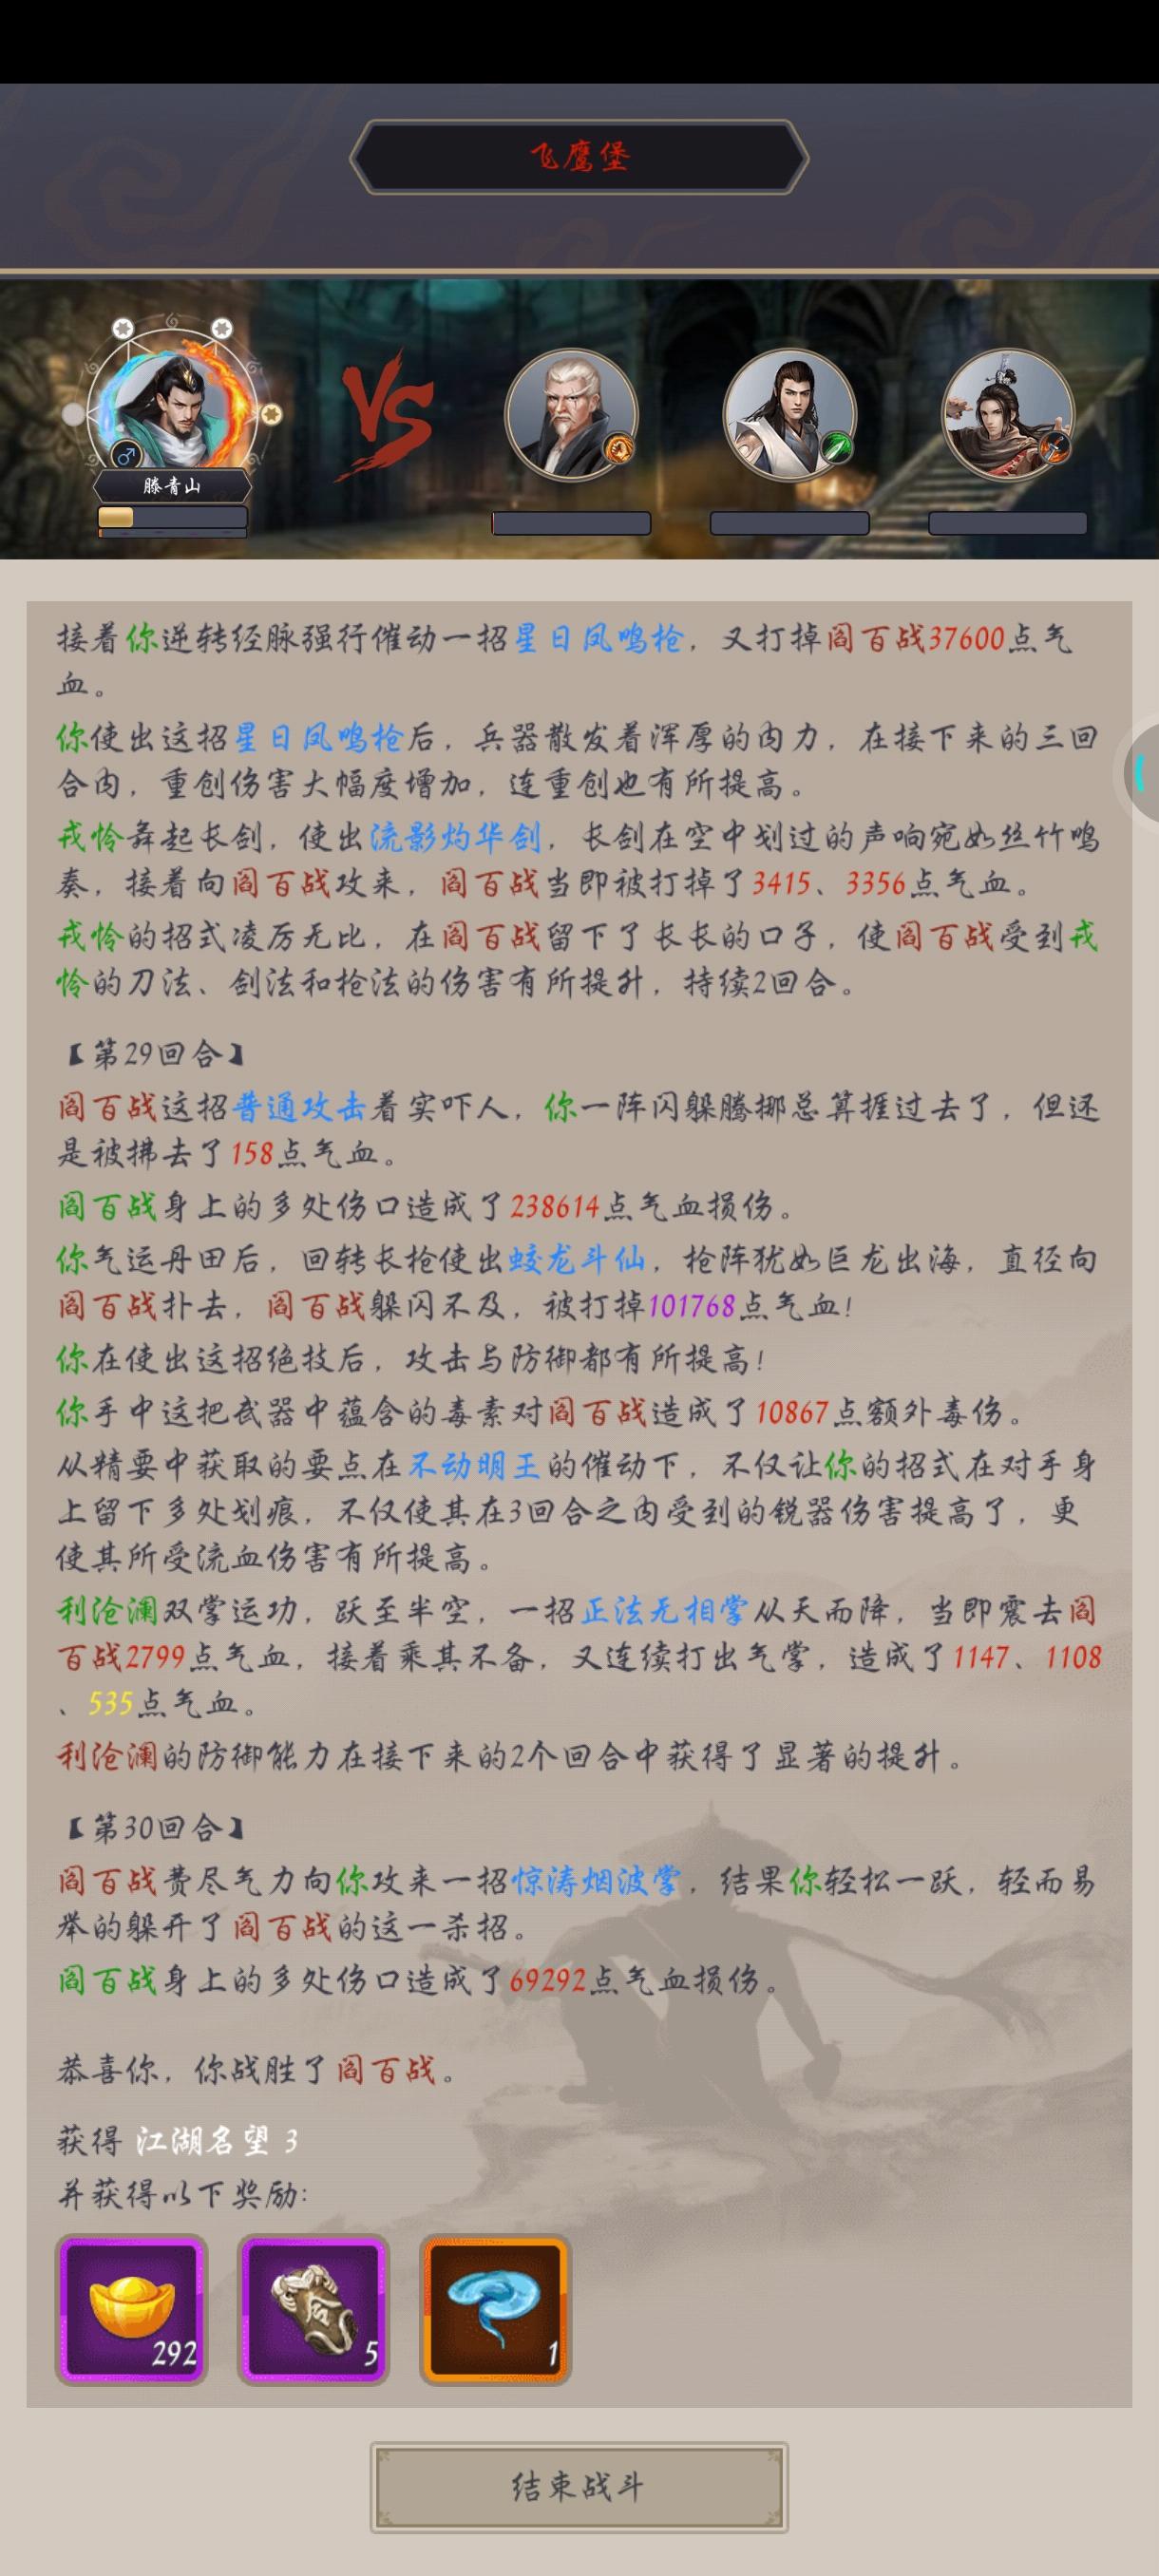 飞鹰堡
VS
滕青山
接着你逆转经脉强行催动一招星日凤鸣枪，又打掉阎百战37600点气
血。
你使出这招星日凤鸣枪后，兵器散发着浑厚的内力，在接下来的三回
合内，重创伤害大幅度增加，连重创也有所提高。
戎怜舞起长剑，使出流影灼华剑，长剑在空中划过的声响宛如丝竹鸣
奏，接着向阎百战攻来，阎百战当即被打掉了3415、3356点气血。
戎怜的招式凌厉无比，在阎百战留下了长长的口子，使阎百战受到戎
怜的刀法、剑法和枪法的伤害有所提升，持续2回合。
【第29回合】
阎百战这招普通攻击着实吓人，你一阵闪躲腾挪总算捱过去了，但还
是被拂去了158点气血。
阎百战身上的多处伤口造成了238614点气血损伤。
你气运丹田后，回转长枪使出蛟龙斗仙，枪阵犹如巨龙出海，直径向
阎百战扑去，阎百战躲闪不及，被打掉101768点气血！
你在使出这招绝技后，攻击与防御都有所提高！
你手中这把武器中蕴含的毒素对阎百战造成了10867点额外毒伤。
从精要中获取的要点在不动明王的催动下，不仅让你的招式在对手身
上留下多处划痕，不仅使其在3回合之内受到的锐器伤害提高了，更
使其所受流血伤害有所提高。
利沧澜双掌运功，跃至半空，一招正法无相掌从天而降，当即震去阎
百战2799点气血，接着乘其不备，又连续打出气掌，造成了1147、1108
、535点气血。
利沧澜的防御能力在接下来的2个回合中获得了显著的提升。
【第30回合】
阎百战费尽气力向你攻来一招惊涛烟波掌，结果你轻松一跃，轻而易
举的躲开了阎百战的这一杀招。
阎百战身上的多处伤口造成了69292点气血损伤。
恭喜你，你战胜了阎百战。
获得 江湖名望 3
并获得以下奖励：
292 5 1
结束战斗